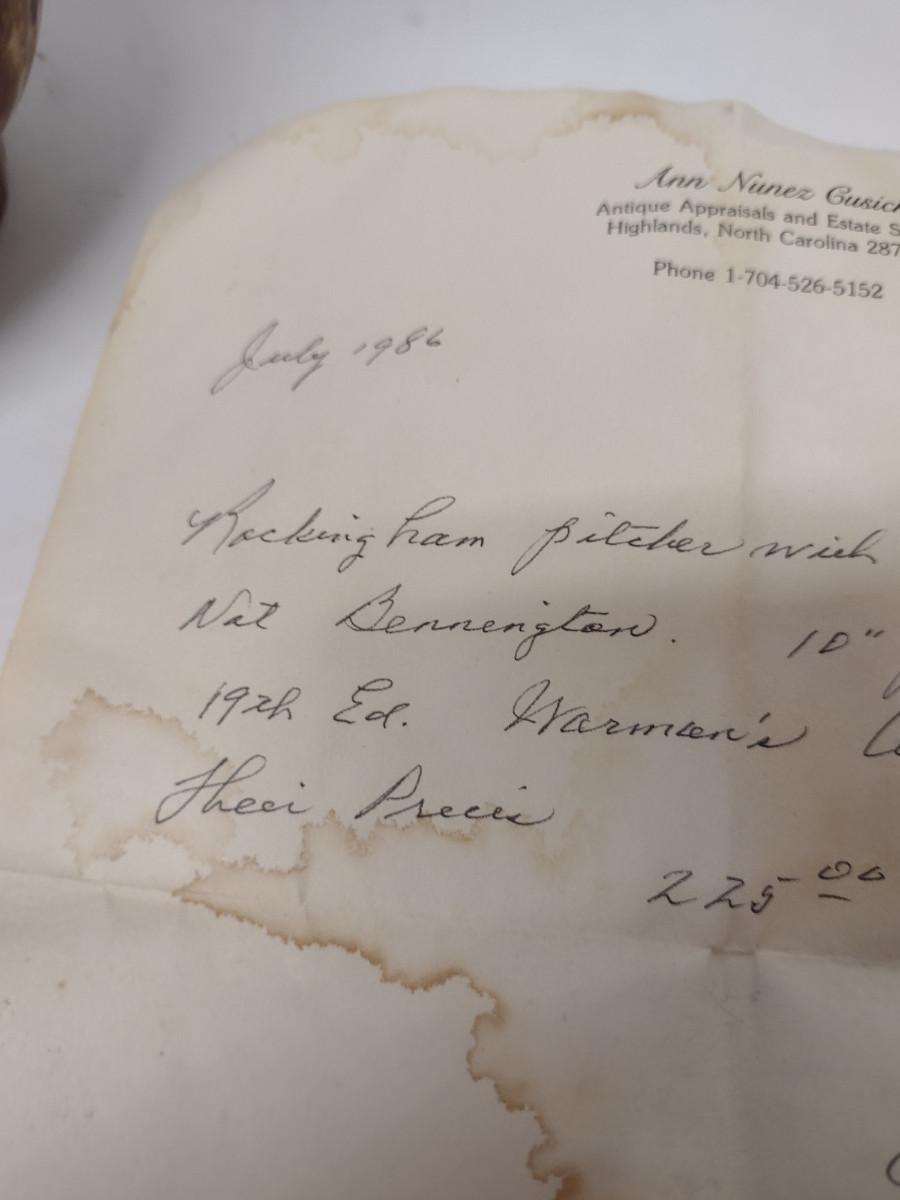 Ann Nunez Cusick
Antique Appraisals and Estate S
Highlands, North Carolina 287
Phone 1-704-526-5152
July 1986
Rockingham pitcher with
Not Bennington. 10"
19th Ed. Warman's
Their Prices
225 00